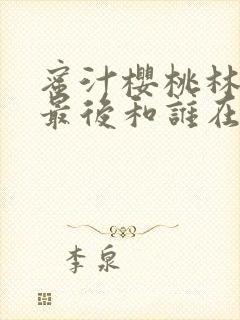 蜜汁櫻桃林
最後和誰在
李泉